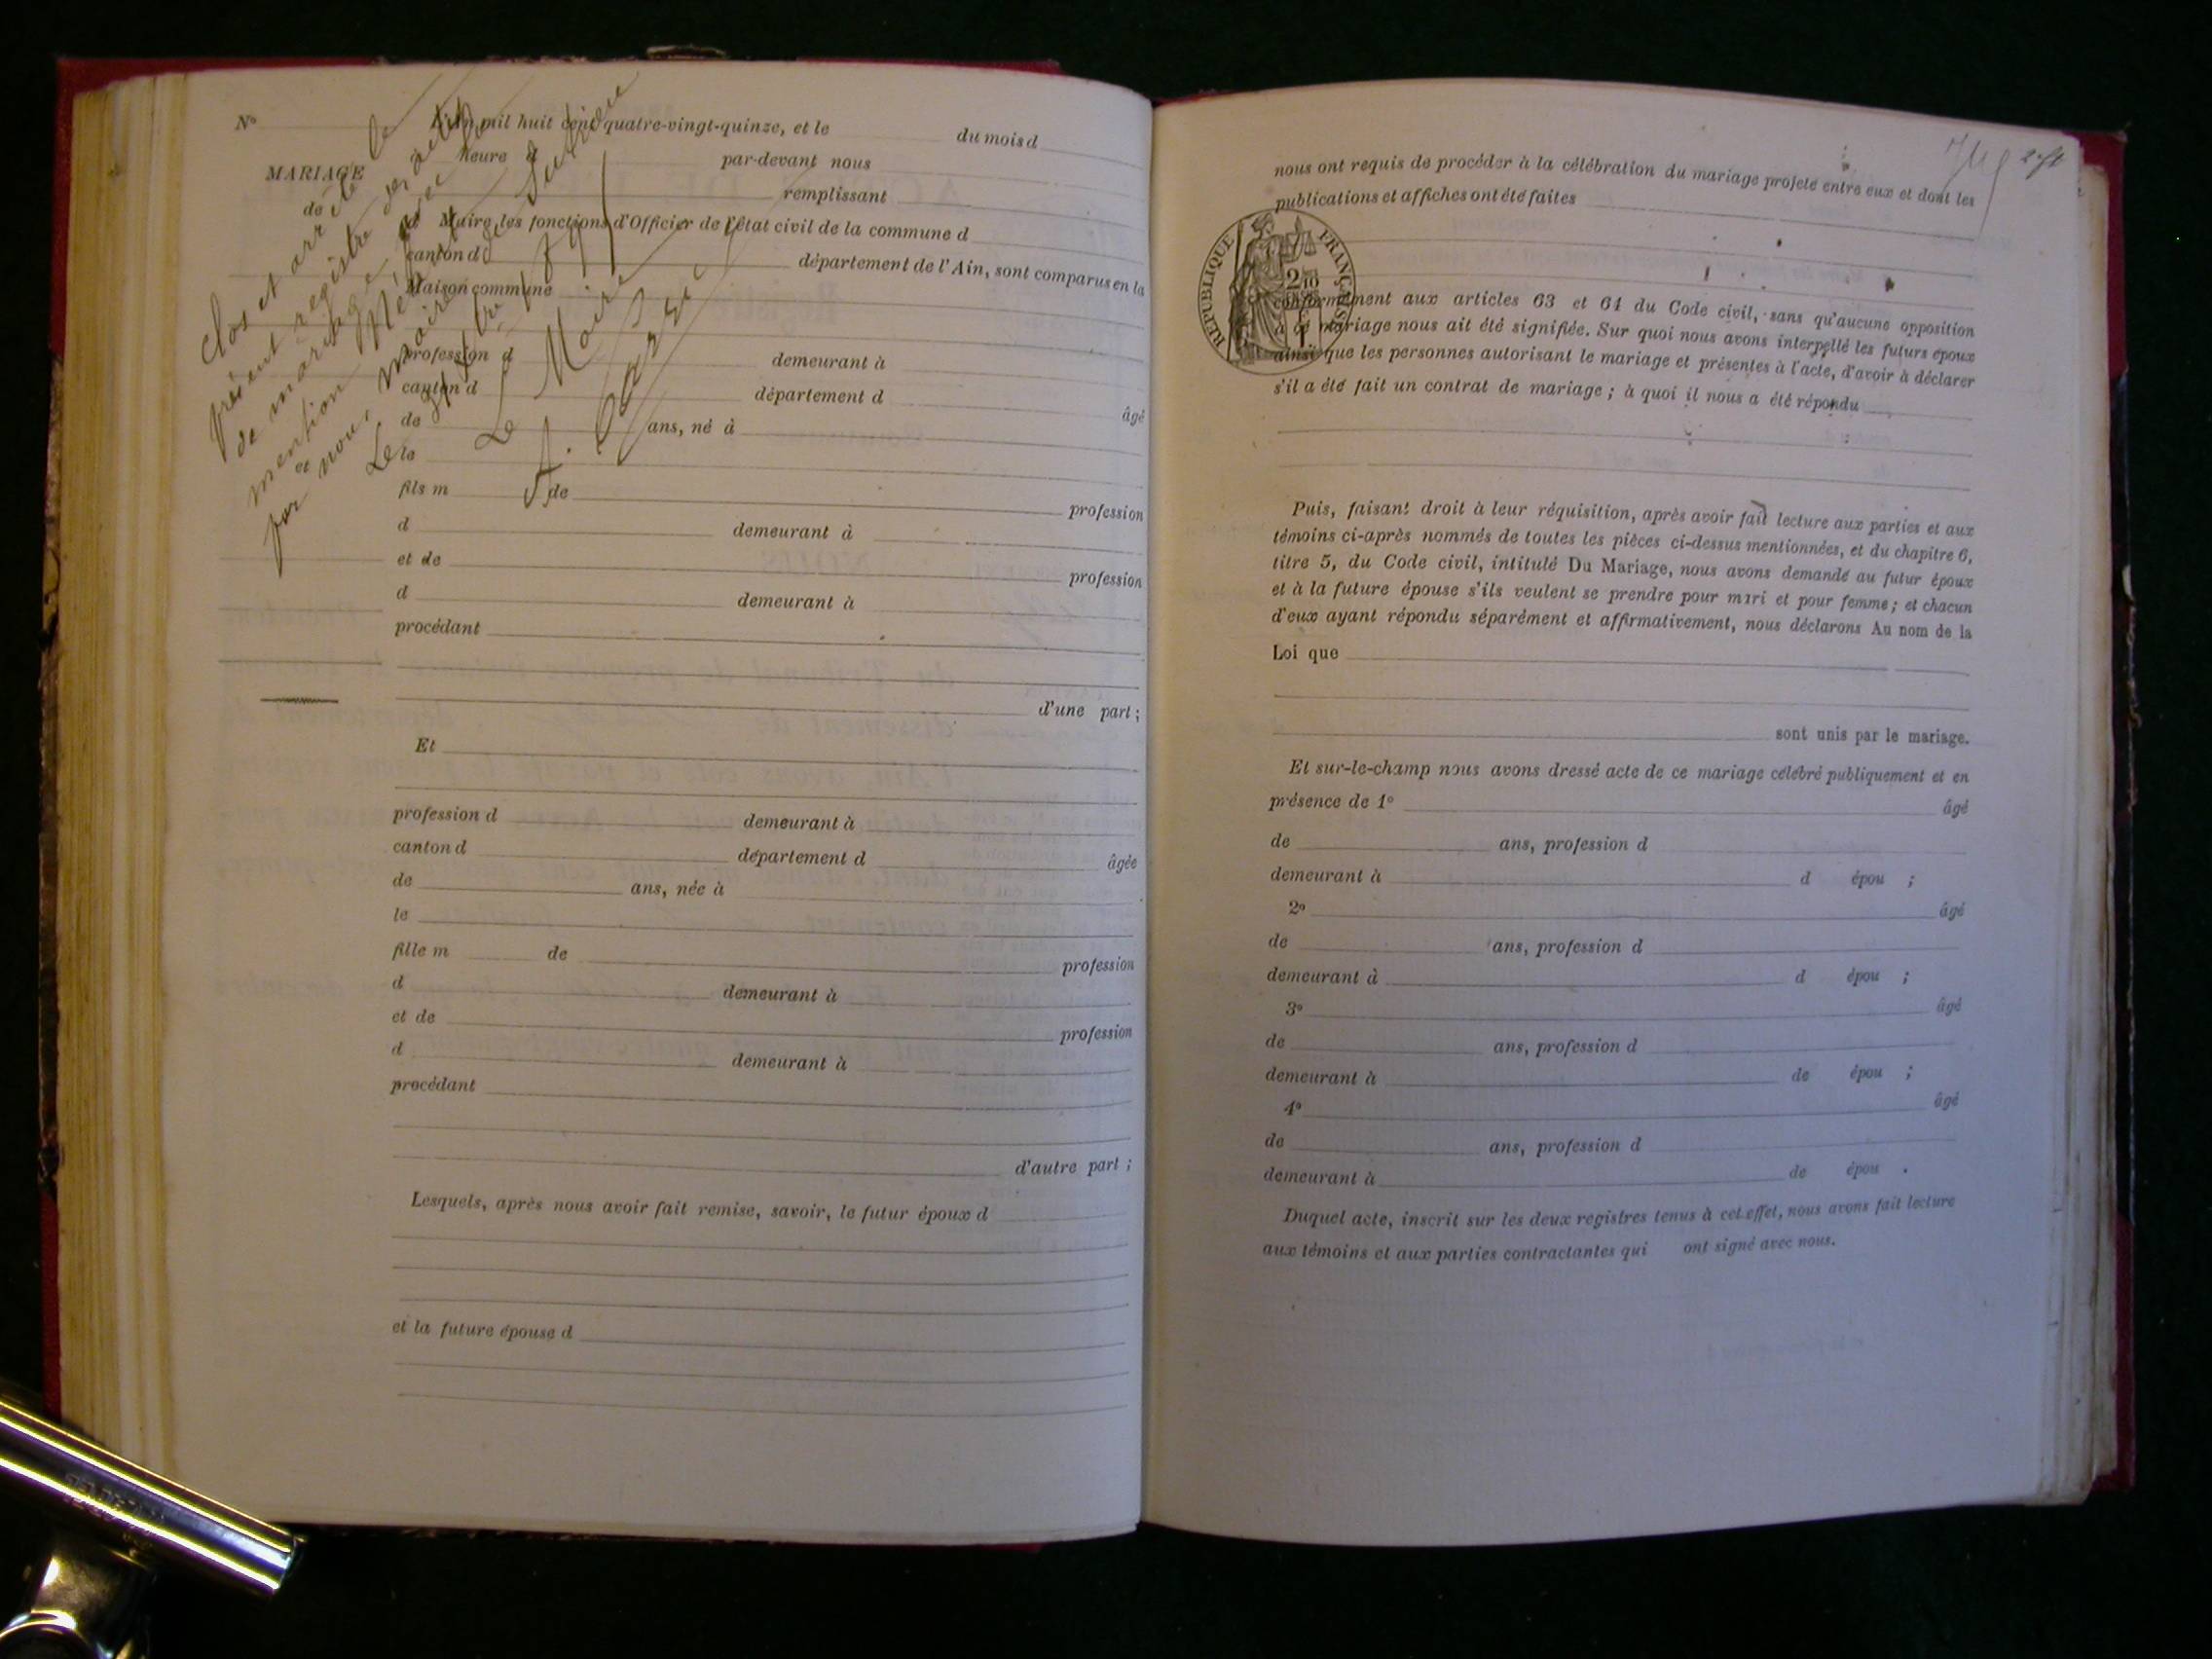 N°
L'an mil huit cent quatre-vingt-quinze, et le du mois d
heure d par-devant nous
MARIAGE
remplissant
de
Maire les fonctions d'Officier de l'état civil de la commune d
canton d département de l'Ain, sont comparus en la
Maison commune
profession d demeurant à
canton d département d âgé
de ans, né à
le
fils m de profession
d demeurant à
et de profession
d demeurant à
procédant
d'une part ;
Et
profession d demeurant à
canton d département d âgée
de ans, née à
le
fille m de profession
d demeurant à
et de profession
d demeurant à
procédant
d'autre part ;
Lesquels, après nous avoir fait remise, savoir, le futur époux d
et la future épouse d
Clos et arrêté le
présent registre des actes
de mariage avec
mention
et
par nous, maire de
Le
Le Maire
nous ont requis de procéder à la célébration du mariage projeté entre eux et dont les
publications et affiches ont été faites
RÉPUBLIQUE FRANÇAISE
conformément aux articles 63 et 64 du Code civil, sans qu'aucune opposition
à ce mariage nous ait été signifiée. Sur quoi nous avons interpellé les futurs époux
ainsi que les personnes autorisant le mariage et présentes à l'acte, d'avoir à déclarer
s'il a été fait un contrat de mariage ; à quoi il nous a été répondu
Puis, faisant droit à leur réquisition, après avoir fait lecture aux parties et aux
témoins ci-après nommés de toutes les pièces ci-dessus mentionnées, et du chapitre 6,
titre 5, du Code civil, intitulé Du Mariage, nous avons demandé au futur époux
et à la future épouse s'ils veulent se prendre pour mari et pour femme ; et chacun
d'eux ayant répondu séparément et affirmativement, nous déclarons Au nom de la
Loi que
sont unis par le mariage.
Et sur-le-champ nous avons dressé acte de ce mariage célébré publiquement et en
présence de 1° âgé
de ans, profession d
demeurant à d épou ;
2° âgé
de ans, profession d
demeurant à d épou ;
3° âgé
de ans, profession d
demeurant à de épou ;
4° âgé
de ans, profession d
demeurant à de épou .
Duquel acte, inscrit sur les deux registres tenus à cet effet, nous avons fait lecture
aux témoins et aux parties contractantes qui ont signé avec nous.